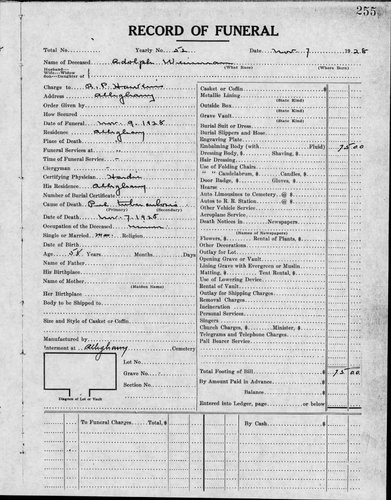 255
RECORD OF FUNERAL
Total No. Yearly No. 52 Date Nov. 7 1928
Name of Deceased Adolph
Husband— (What Race) (Where Born)
Wife—Widow
Son—Daughter of
Charge to R. P. Hawkins
Address Allighany
Order Given by
How Secured
Date of Funeral Nov. 9, 1928
Residence Allighany
Place of Death
Funeral Services at
Time of Funeral Service
Clergyman
Certifying Physician
His Residence Allighany
Number of Burial Certificate
Cause of Death Pul tuberculosis
(Primary) (Secondary)
Date of Death Nov. 7, 1928
Occupation of the Deceased miner
Single or Married Religion
Date of Birth
Age 58 Years Months Days
Name of Father
His Birthplace
Name of Mother
(Maiden Name)
Her Birthplace
Body to be Shipped to
Size and Style of Casket or Coffin
Manufactured by
Interment at Allighany Cemetery
Lot No.
Grave No.
Section No.
Diagram of Lot or Vault
Casket or Coffin
Metallic Lining
(State Kind)
Outside Box
(State Kind)
Grave Vault
(State Kind)
Burial Suit or Dress
Burial Slippers and Hose
Engraving Plate
Embalming Body (with Fluid) 75 00
Dressing Body, $ Shaving, $
Hair Dressing
Use of Folding Chairs
" " Candelabrum, $ Candles, $
Door Badge, $ Gloves, $
Hearse
Auto Limousines to Cemetery @ $
Autos to R. R. Station @ $
Other Vehicle Service
Aeroplane Service
Death Notices in Newspapers
(Names of Newspapers)
Flowers, $ Rental of Plants, $
Other Decorations
Outlay for Lot
Opening Grave or Vault
Lining Grave with Evergreen or Muslin
Matting, $ Tent Rental, $
Use of Lowering Device
Rental of Vault
Outlay for Shipping Charges
Removal Charges
Incineration
Personal Services
Singers
Church Charges, $ Minister, $
Telegrams and Telephone Charges
Pall Bearer Service
Total Footing of Bill $ 75 00
By Amount Paid in Advance $
Balance $
Entered into Ledger, page or below
To Funeral Charges Total, $ By Cash $